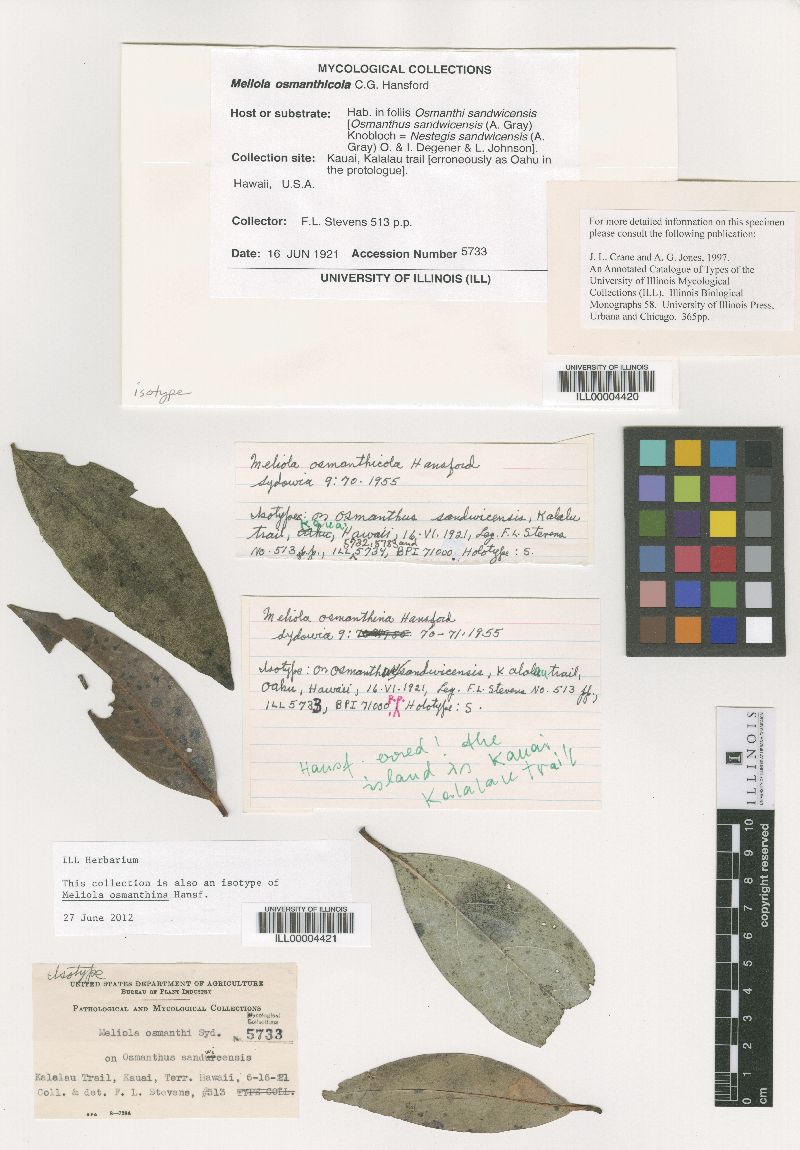 MYCOLOGICAL COLLECTIONS
Meliola osmanthicola C.G. Hansford
Host or substrate: Hab. in foliis Osmanthi sandwicensis
[Osmanthus sandwicensis (A. Gray)
Knobloch = Nestegis sandwicensis (A.
Gray) O. & I. Degener & L. Johnson].
Collection site: Kauai, Kalalau trail [erroneously as Oahu in
the protologue].
Hawaii, U.S.A.
Collector: F.L. Stevens 513 p.p.
Date: 16 JUN 1921 Accession Number 5733
UNIVERSITY OF ILLINOIS (ILL)
isotype
For more detailed information on this specimen
please consult the following publication:
J. L. Crane and A. G. Jones, 1997.
An Annotated Catalogue of Types of the
University of Illinois Mycological
Collections (ILL). Illinois Biological
Monographs 58. University of Illinois Press,
Urbana and Chicago. 365pp.
UNIVERSITY OF ILLINOIS
ILL00004420
Meliola osmanthicola Hansford
Sydowia 9:70. 1955
Isotypes: on Osmanthus sandwicensis, Kalalu
Kauai
trail, Oahu, Hawaii, 16.VI.1921, Leg. F.L. Stevens
5732, 5783, and
No. 513 p.p., ILL 5734, BPI 71000. Holotype: S.
Meliola osmanthina Hansford
Sydowia 9: 70-71. 1955
Isotype: on Osmanthus sandwicensis, Kalalau trail,
Oahu, Hawaii, 16.VI.1921, Leg. F.L. Stevens No. 513 pp.,
ILL 5733, BPI 71000 p.p. Holotype: S.
Hansf. erred! the
island is Kauai
Kalalau trail
ILL Herbarium
This collection is also an isotype of
Meliola osmanthina Hansf.
27 June 2012
UNIVERSITY OF ILLINOIS
ILL00004421
Isotype
UNITED STATES DEPARTMENT OF AGRICULTURE
BUREAU OF PLANT INDUSTRY
PATHOLOGICAL AND MYCOLOGICAL COLLECTIONS
Mycological
Collections
Meliola osmanthi Syd. No. 5733
on Osmanthus sandwicensis
Kalalau Trail, Kauai, Terr. Hawaii, 6-16-21
Coll. & det. F. L. Stevens, #513 TYPE COLL.
ILLINOIS
copyright reserved
10
9
8
7
6
5
4
3
2
1
0
cm